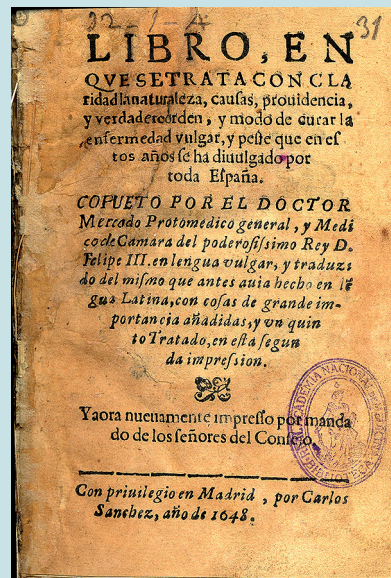 22-1-A
31
LIBRO, EN
QVE SE TRATA CON CLA
ridad la naturaleza, causas, prouidencia,
y verdadero orden, y modo de curar la
enfermedad vulgar, y peste que en es
tos años se ha diuulgado por
toda España.
COPUETO POR EL DOCTOR
Mercado Protomedico general, y Medi
co de Camara del poderosissimo Rey D.
Felipe III. en lengua vulgar, y traduzi
do del mismo que antes auia hecho en lē
gua Latina, con cosas de grande im-
portancia añadidas, y vn quin
to Tratado, en esta segun
da impression.
Y aora nueuamente impresso por manda
do de los señores del Consejo.
Con priuilegio en Madrid, por Carlos
Sanchez, año de 1648.
ACADEMIA NACIONAL
BIBLIOTECA